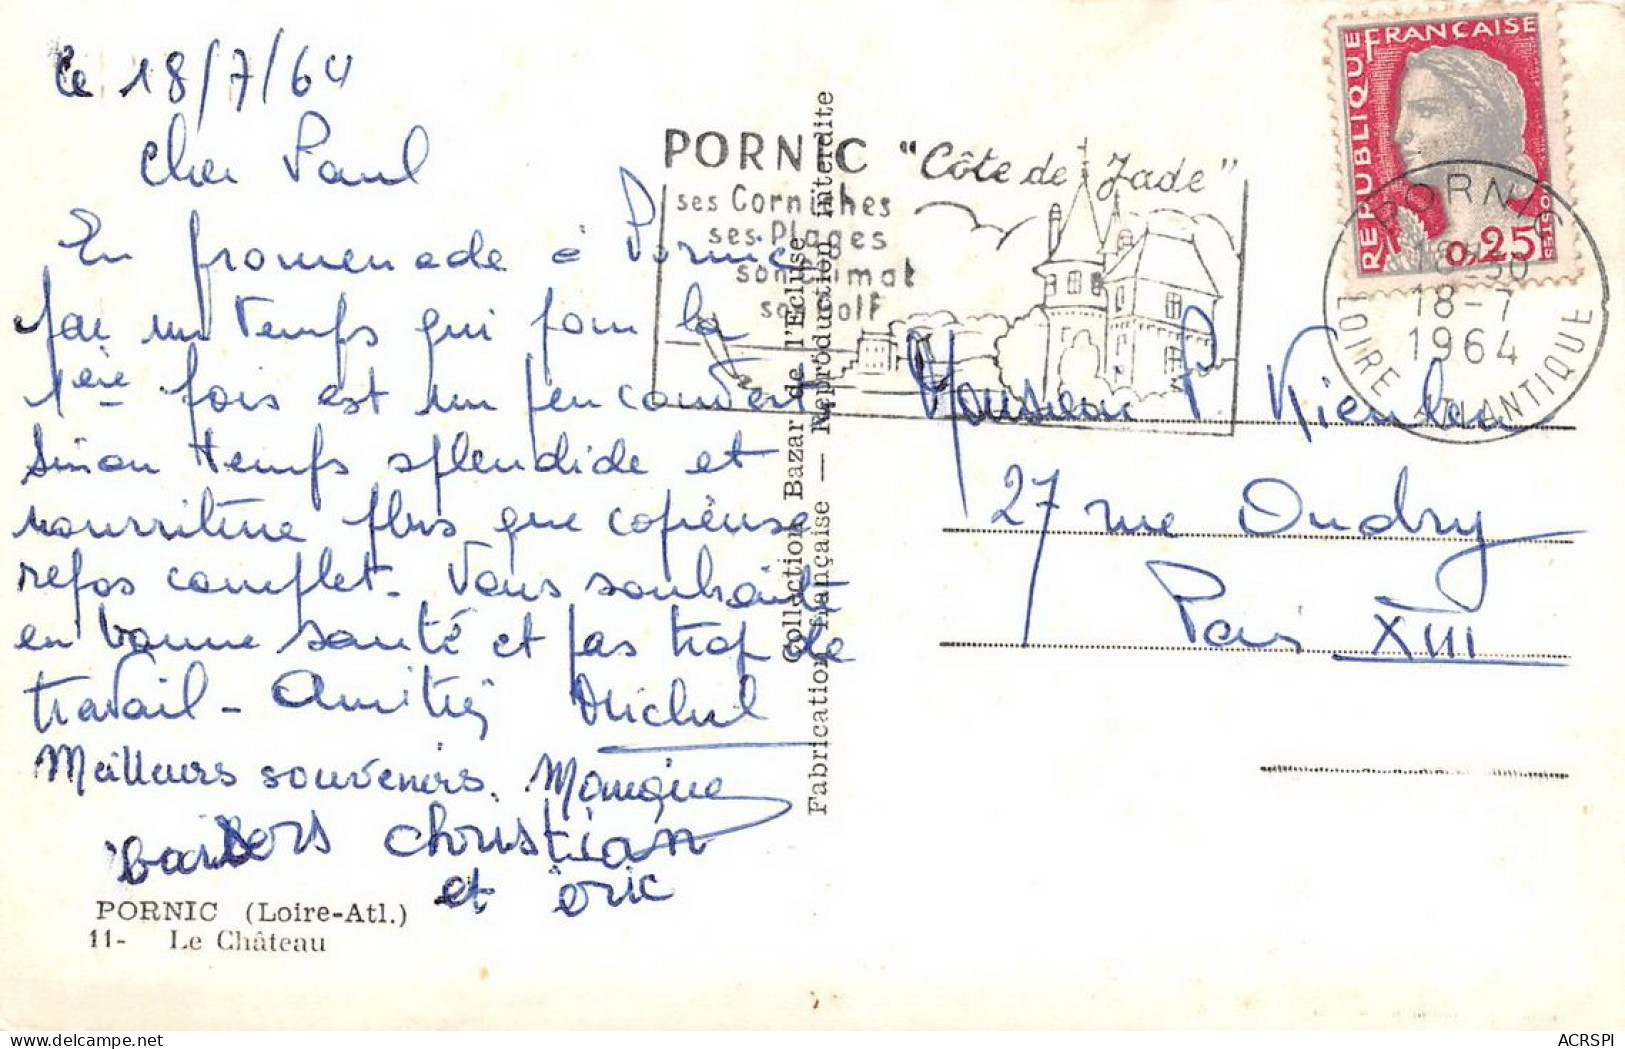 le 18/7/64
Cher Paul
En promenade à Pornic
par un temps qui pour la
1ère fois est un peu couvert
Sinon temps splendide et
nourriture plus que copieuse
repos complet. Vous souhaite
en bonne santé et pas trop de
travail - Amitiés Michel
Meilleurs souvenirs. Monique
baisers christian
et éric
PORNIC (Loire-Atl.)
11- Le Château
Collection Bazar de l'Ecluse
Fabrication française — Reproduction interdite
PORNIC "Côte de Jade"
ses Corniches
ses Plages
son climat
son golf
REPUBLIQUE FRANÇAISE
0,25
PORNIC
18-7
1964
LOIRE ATLANTIQUE
Monsieur P.
27 rue Oudry
Paris XIII
ACRSPI